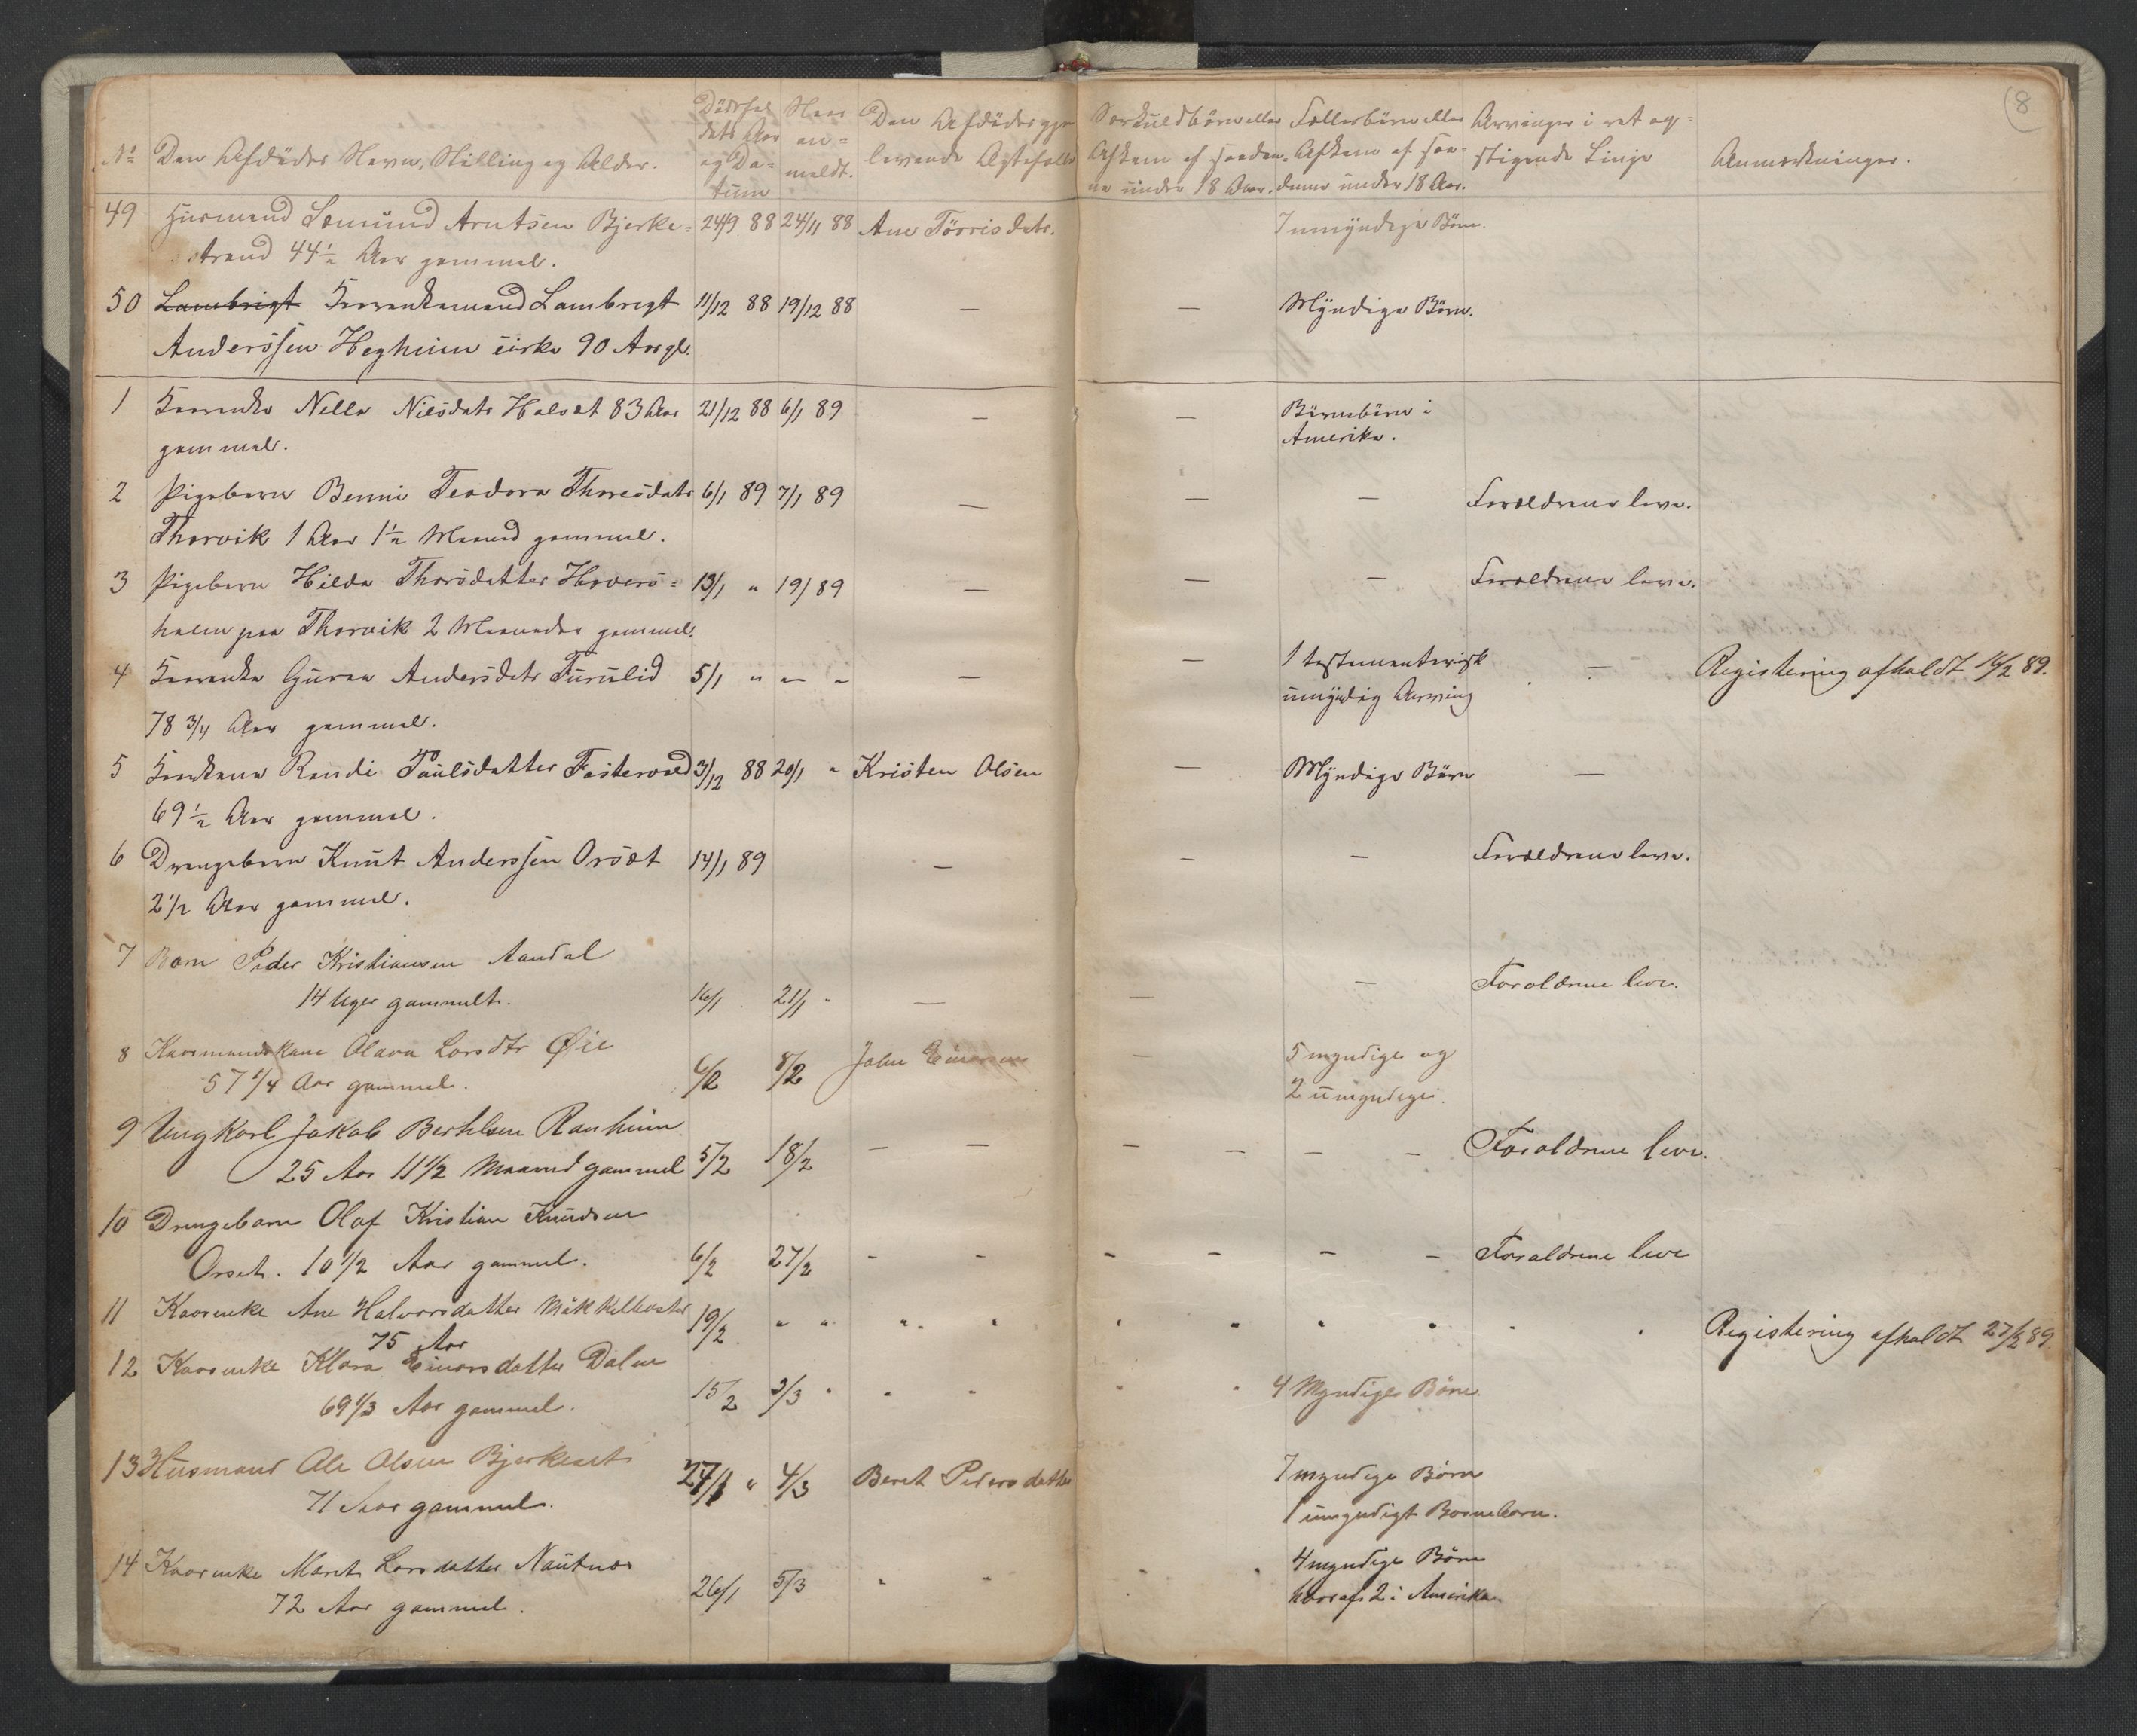 8
No Den Afdødes Navn, Stilling og Alder. Dødsfaldets Aar og Datum Naar anmeldt. Den Afdødes gjenlevende Ægtefælle Særkuldbørn eller Afkom af saadanne under 18 Aar. Fællesbørn eller Afkom af saadanne under 18 Aar. Arvinger i ret opstigende Linje Anmærkninger.
49 Husmand Semund Arntsen Bjerke= 24/9 88 24/11 88 Ane Törrisdatr. 7 umyndige Børn.
strand 44½ Aar gammel.
50 Lambrigt Kaarenkemand Lambregt 11/12 88 19/12 88 — — Myndige Børn.
Anderssen Hegheim cirka 90 Aar gl.
1 Kaarenke Nille Nilsdatr Halsæt 83 Aar 21/12 88 6/1 89 — — Børnebørn i
gammel. Amerika.
2 Pigebarn Benni Teodora Thoresdatr 6/1 89 7/1 89 — — — Forældrene leve.
Thorvik 1 Aar 1½ Maaned gammel.
3 Pigebarn Hilda Thorsdatter Hovers= 13/1 " 19/ 89 — — — Forældrene leve.
holm paa Thorvik 2 Maaneder gammel.
4 Kaarenke Guroa Andersdatr Furulid 5/1 " — " — — 1 testamentarisk — Registering afholdt 16/2 89.
78 3/4 Aar gammel. umyndig Arving
5 Kaarkone Randi Paulsdatter Fostervold 3/12 88 20/1 " Kristen Olsen — Myndige Børn —
69½ Aar gammel.
6 Drengebarn Knut Anderssen Orsæt 14/1 89 — — — Forældrene leve.
2½ Aar gammel.
7 Barn Peder Kristiansen Aandal
14 Uger gammelt. 16/1 21/1 " — — — Foroldrene leve.
8 Kaarmandskone Olava Larsdtr Øie 6/2 8/2 John Einarsen — 5 myndige og
57 1/4 Aar gammel. 2 umyndige.
9 Ungkarl Jakob Berthelsen Ranheim
25 Aar 11½ Maaned gammel 5/2 18/2 — — — — — — Foroldrene leve.
10 Drengebarn Olaf Kristian Knudsen
Orset. 10½ Aar gammel. 6/2 27/2 - - - - - - Foraldrene leve
11 Kaarenke Ane Halvorsdatter 19/2 " " " " " " " " " " Registering afholdt 27/2 89.
75 Aar
12 Kaarenke Klara Einarsdatter Dalne
69 1/3 Aar gammel. 15/2 3/3 " " " " " 4 Myndige Børn.
13 Husmand Ole Olsen Bjerkeset 27/1 " 4/3 Beret Pedersdatter 7 myndige Børn
71 Aar gammel. 1 umyndigt Bornebarn.
14 Kaarenke Marit Larsdatter Nautnes 26/1 5/3 " " " " 4 myndige Børn
72 Aar gammel. hvoraf 2 i Amerika.